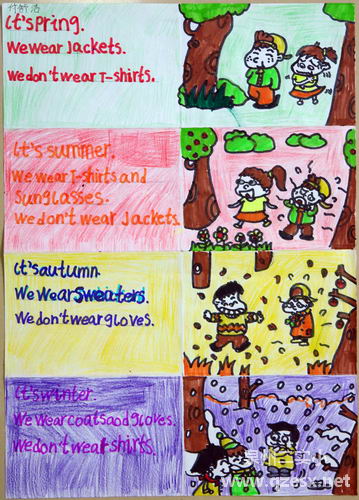 It'spring.
We wear Jackets.
We don't wear T-shirts.
It's summer.
We wear T-shirts and
Sunglasses.
We don't wear Jackets.
It's autumn.
We wear Sweaters.
We don't wear gloves.
It's winter.
We wear coats aod gloves.
We don't weat shirts.
www.qzesx.net